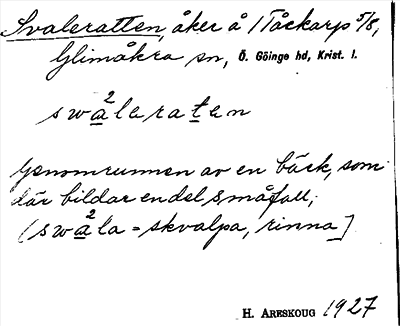 Svaleratten, åker å 1 Tåckarp 5/8,
Glimåkra sn, Ö. Göinge hd, Krist. l.
swa²leraten
Genomrunnen av en bäck, som
där bildar en del småfall,
(swa²la = skvalpa, rinna]
H. ARESKOUG 1927